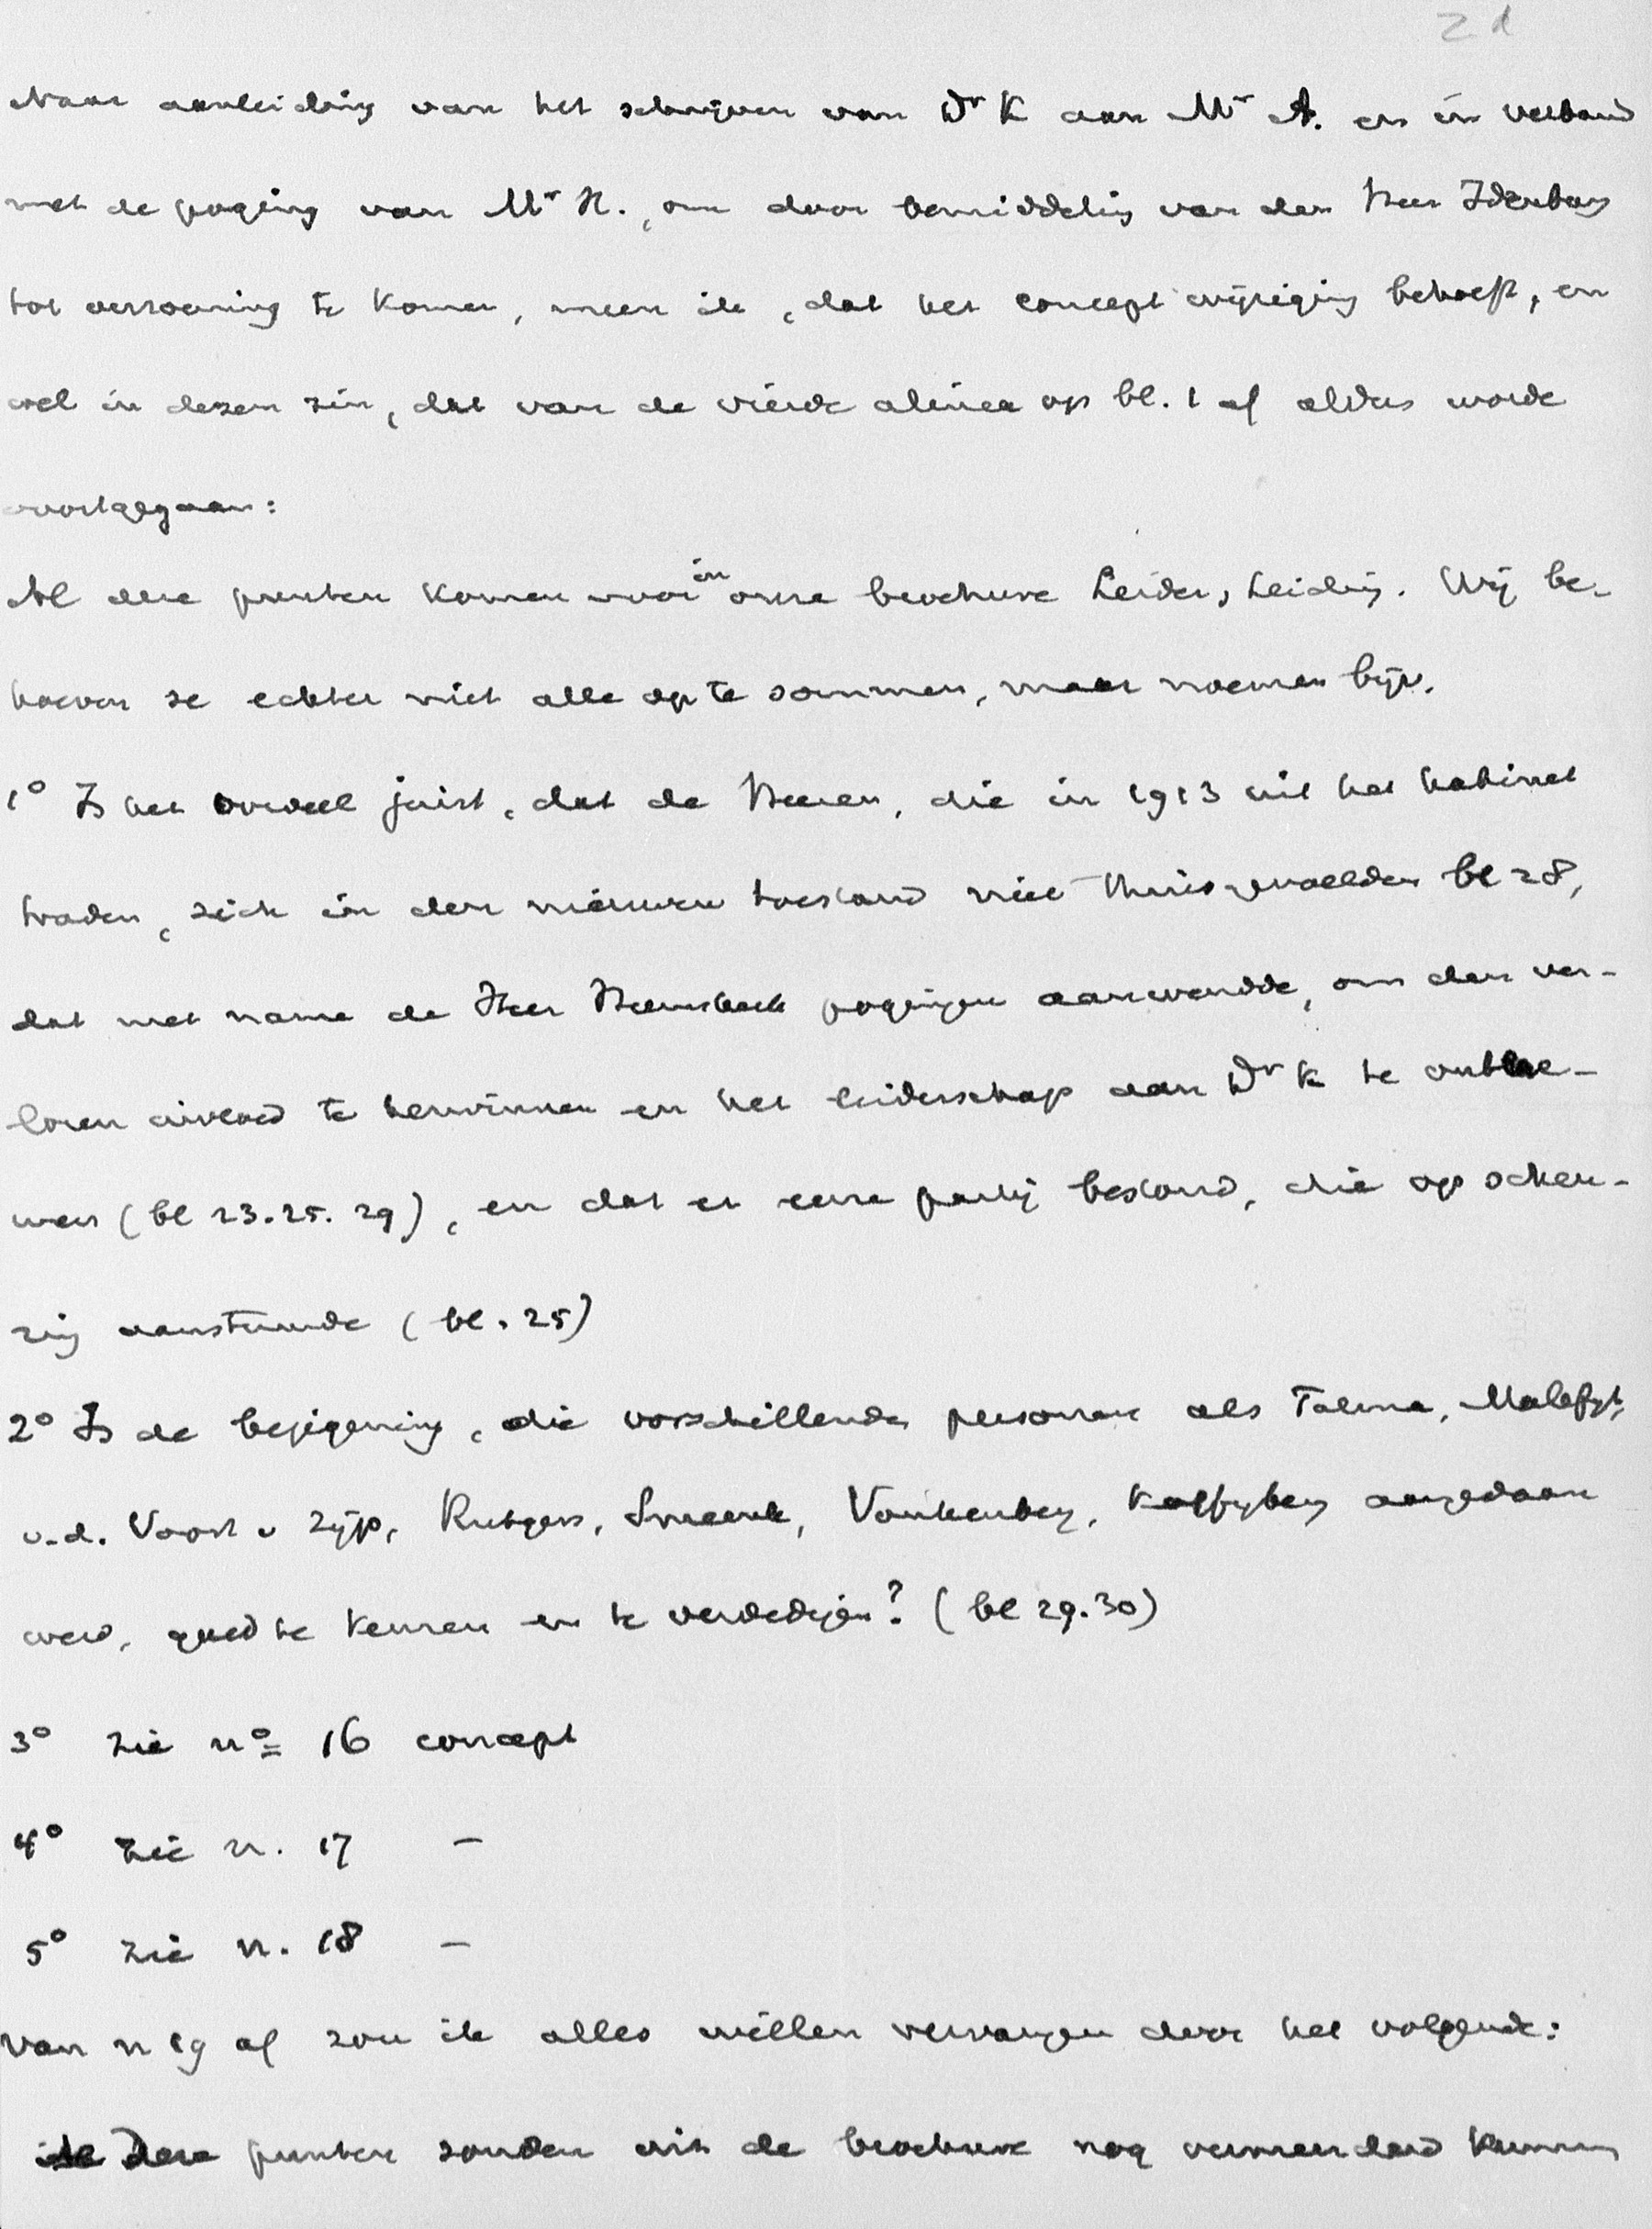 2d
Naar aanleiding van het schrijven van Dr K aan Mr A. en in verband
met de poging van Mr H., om door bemiddeling van den Heer Idenburg
tot verzoening te komen, meen ik, dat het concept wijziging behoeft, en
wel in dezen zin, dat van de vierde alinea op bl. 1 af aldus worde
voortgegaan:
Al deze punten komen voor in onze brochure Leider, Leiding. Wij be-
hoeven ze echter niet alle op te sommen, maar noemen bijv.
1o Is het oordeel juist, dat de Heeren, die in 1913 uit het kabinet
traden, zich in den nieuwen toestand niet thuisgevoelden bl 28,
dat met name de Heer Heemskerk pogingen aanwendde, om den ver-
loren invloed te herwinnen en het leiderschap aan Dr K te ontne-
men (bl 23.25.29), en dat er eene partij bestond, die op scheu-
ring aanstuurde (bl. 25)
2o Is de bejegening, die verschillende personen als Talma, Malefijt,
v.d. Voort v Zijp, Rutgers, Smeenk, Vonkenberg, aangedaan
werd, goed te keuren en te verdedigen? (bl 29.30)
3o zie no 16 concept
4o zie n. 17 –
5o zie n. 18 –
Van n 19 af zou ik alles willen vervangen door het volgende:
Deze punten zouden uit de brochure nog vermeerderd kunnen